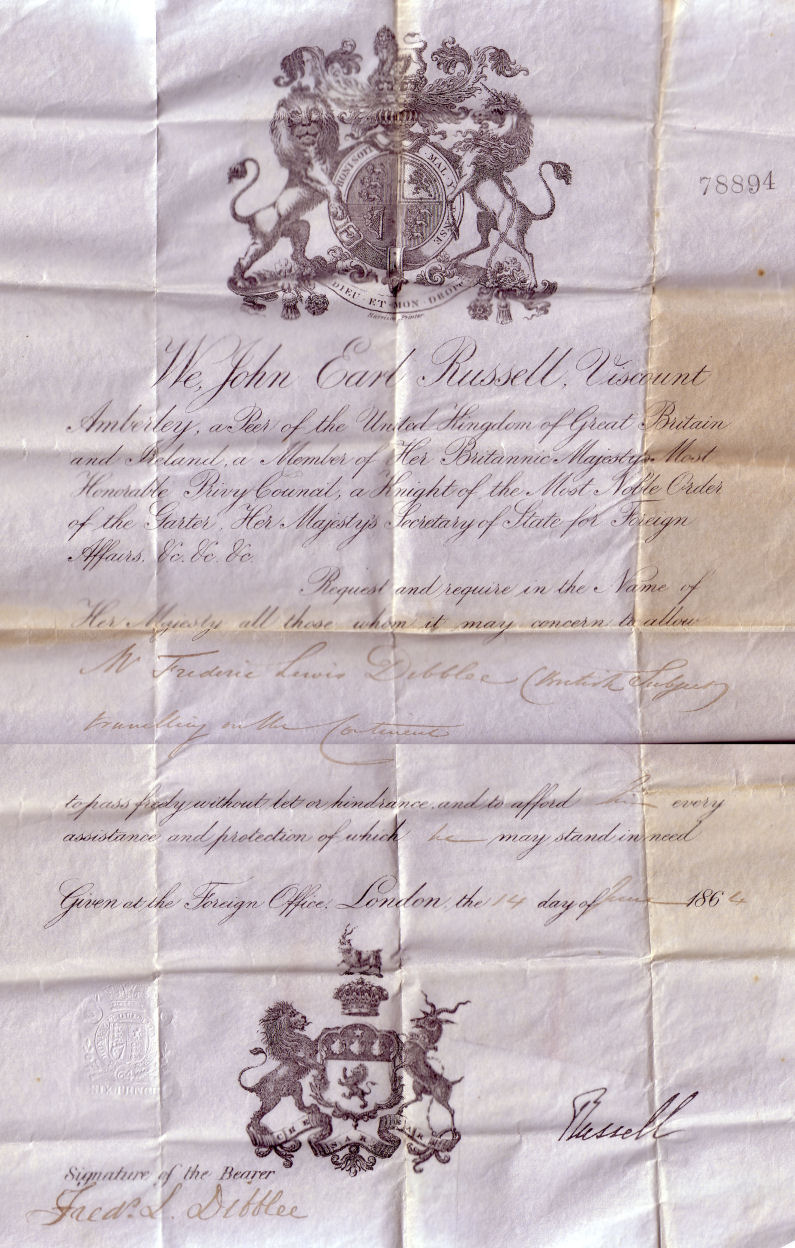 HONI SOIT MAL Y PENSE
78894
DIEU·ET·MON·DROIT
Harrison Printer
We, John Earl Russell, Viscount
Amberley, a Peer of the United Kingdom of Great Britain
and Ireland, a Member of Her Britannic Majesty's Most
Honorable Privy Council, a Knight of the Most Noble Order
of the Garter, Her Majesty's Secretary of State for Foreign
Affairs, &c. &c. &c.
Request and require in the Name of
Her Majesty all those whom it may concern to allow
Mr Frederic Lewis Debblee (British Subject)
travelling on the Continent
to pass freely without let or hindrance, and to afford him every
assistance and protection of which he may stand in need
Given at the Foreign Office, London, the 14 day of June 1864
SIX PENCE
CHE SARA SARA
Russell
Signature of the Bearer
Fredc. L. Debblee